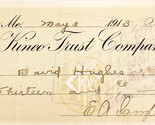 Me. May 3 1913
Kineo Trust Compan
David Hughes
hirteen and
E. A.